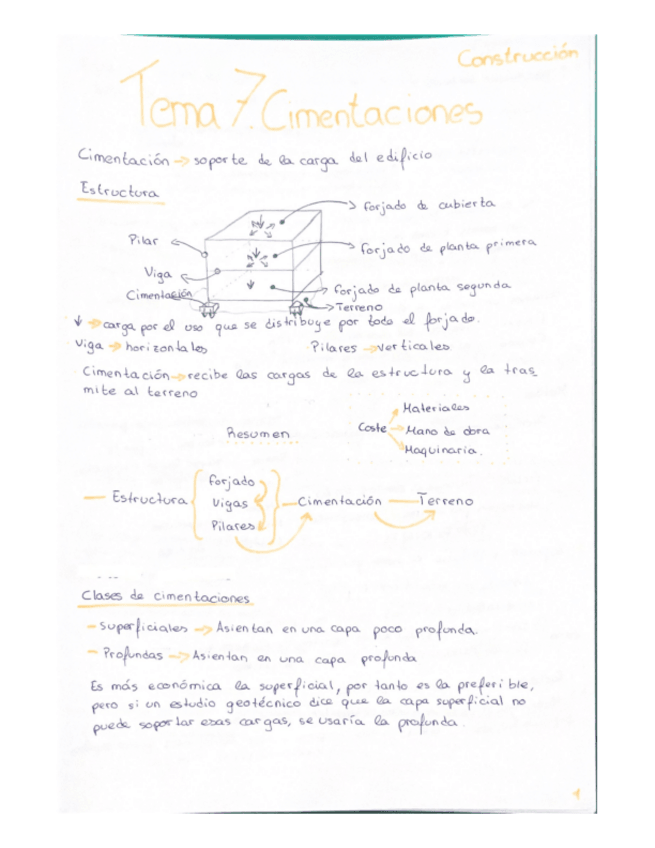 Construcción
Tema 7. Cimentaciones
Cimentación → soporte de la carga del edificio
Estructura
forjado de cubierta
Pilar
forjado de planta primera
Viga
forjado de planta segunda
Cimentación
Terreno
↓ → carga por el uso que se distribuye por todo el forjado.
Viga → horizontales
Pilares → verticales
Cimentación → recibe las cargas de la estructura y la tras
mite al terreno
Materiales
Resumen
Coste → Mano de obra
Maquinaria.
forjado
— Estructura Vigas — Cimentación — Terreno
Pilares
Clases de cimentaciones
- Superficiales → Asientan en una capa poco profunda.
- Profundas → Asientan en una capa profunda
Es más económica la superficial, por tanto es la preferible,
pero si un estudio geotécnico dice que la capa superficial no
puede soportar esas cargas, se usaría la profunda.
1